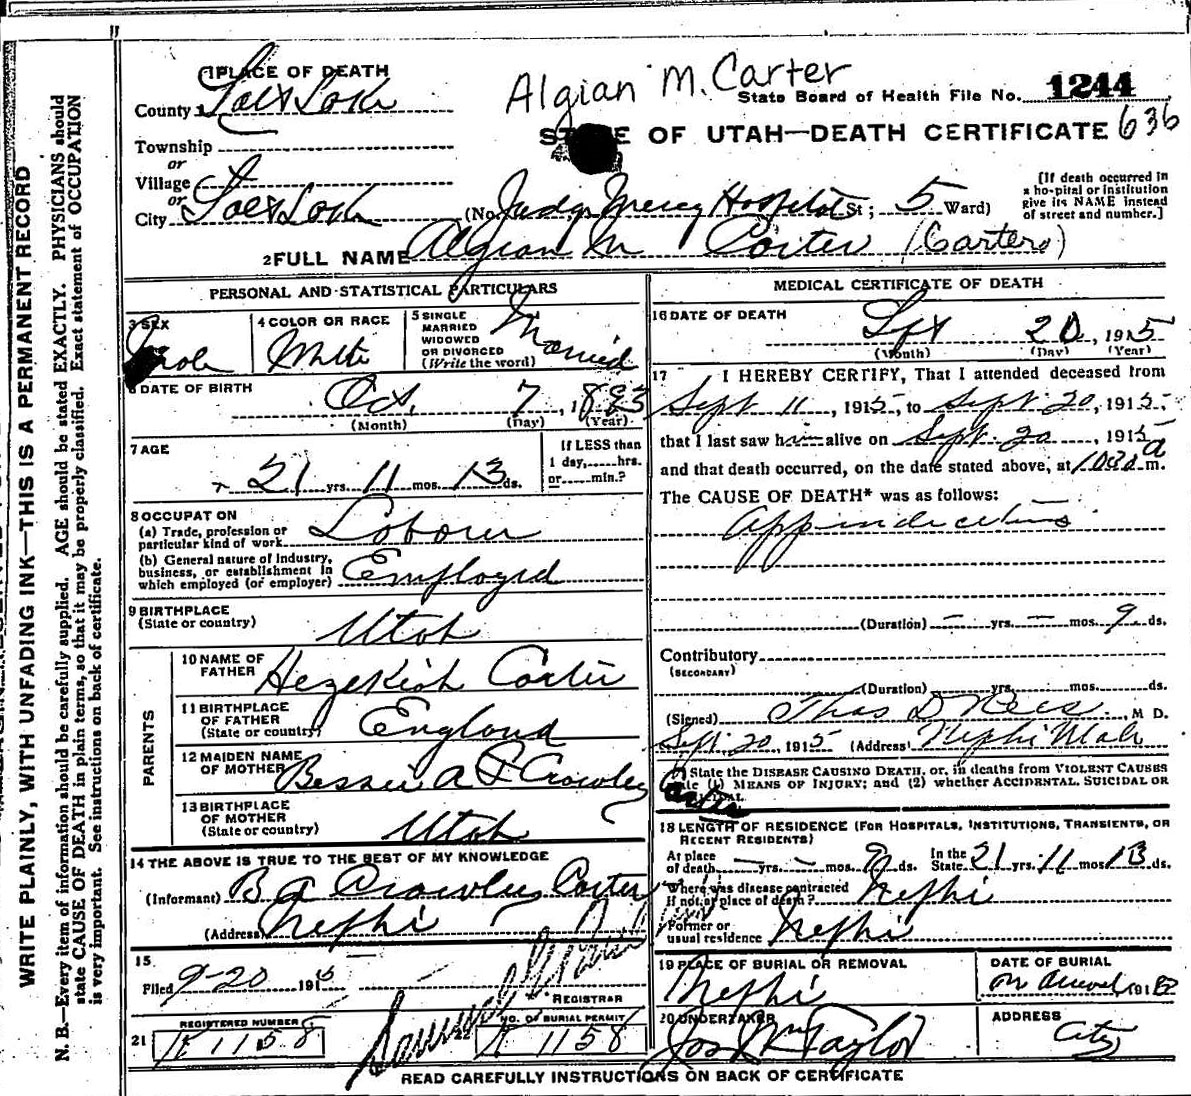 1 PLACE OF DEATH
County Salt Lake
Algian M. Carter
State Board of Health File No. 1244
636
Township
or
Village
or
City Salt Lake
STATE OF UTAH—DEATH CERTIFICATE
(No. Judge Mercy Hospital St; 5 Ward)
[If death occurred in
a hospital or institution
give its NAME instead
of street and number.]
2 FULL NAME Algian M Carter (Carter)
PERSONAL AND STATISTICAL PARTICULARS
3 SEX
Male
4 COLOR OR RACE
White
5 SINGLE
MARRIED
WIDOWED
OR DIVORCED
(Write the word)
Married
6 DATE OF BIRTH
Oct. 7, 1893
(Month) (Day) (Year)
7 AGE
21 yrs. 11 mos. 13 ds.
If LESS than
1 day, hrs.
or min.?
8 OCCUPATON
(a) Trade, profession or
particular kind of work Laborer
(b) General nature of industry,
business, or establishment in
which employed (or employer) Employed
9 BIRTHPLACE
(State or country)
Utah
PARENTS
10 NAME OF
FATHER Hezekiah Carter
11 BIRTHPLACE
OF FATHER
(State or country) England
12 MAIDEN NAME
OF MOTHER Bessie A P Crowley
13 BIRTHPLACE
OF MOTHER
(State or country) Utah
14 THE ABOVE IS TRUE TO THE BEST OF MY KNOWLEDGE
(Informant) B A Crowley Carter
(Address) Nephi
15
Filed 9-20 1915
REGISTRAR
21
REGISTERED NUMBER
K 1158
NO. OF BURIAL PERMIT
K 1158
MEDICAL CERTIFICATE OF DEATH
16 DATE OF DEATH
Sept 20, 1915
(Month) (Day) (Year)
17 I HEREBY CERTIFY, That I attended deceased from
Sept 11, 1915, to Sept 20, 1915,
that I last saw him alive on Sept 20, 1915
and that death occurred, on the date stated above, at a m.
The CAUSE OF DEATH* was as follows:
Appendicitis
(Duration) — yrs. — mos. 9 ds.
Contributory
(SECONDARY)
(Duration) yrs. mos. ds.
(Signed) Thos D Rees M D.
Sept 20, 1915 (Address) Nephi Utah
(*) State the DISEASE CAUSING DEATH, or, in deaths from VIOLENT CAUSES
state (1) MEANS OF INJURY; and (2) whether ACCIDENTAL, SUICIDAL OR
18 LENGTH OF RESIDENCE (FOR HOSPITALS, INSTITUTIONS, TRANSIENTS, OR
RECENT RESIDENTS)
At place
of death — yrs. — mos. 9 ds.
In the
State 21 yrs. 11 mos 13 ds.
Where was disease contracted
if not at place of death? Nephi
Former or
usual residence Nephi
19 PLACE OF BURIAL OR REMOVAL
Nephi
DATE OF BURIAL
20 UNDERTAKER
Jos Wm Taylor
ADDRESS
City
READ CAREFULLY INSTRUCTIONS ON BACK OF CERTIFICATE
WRITE PLAINLY, WITH UNFADING INK—THIS IS A PERMANENT RECORD
N. B.—Every item of information should be carefully supplied. AGE should be stated EXACTLY. PHYSICIANS should
state CAUSE OF DEATH in plain terms, so that it may be properly classified. Exact statement of OCCUPATION
is very important. See instructions on back of certificate.